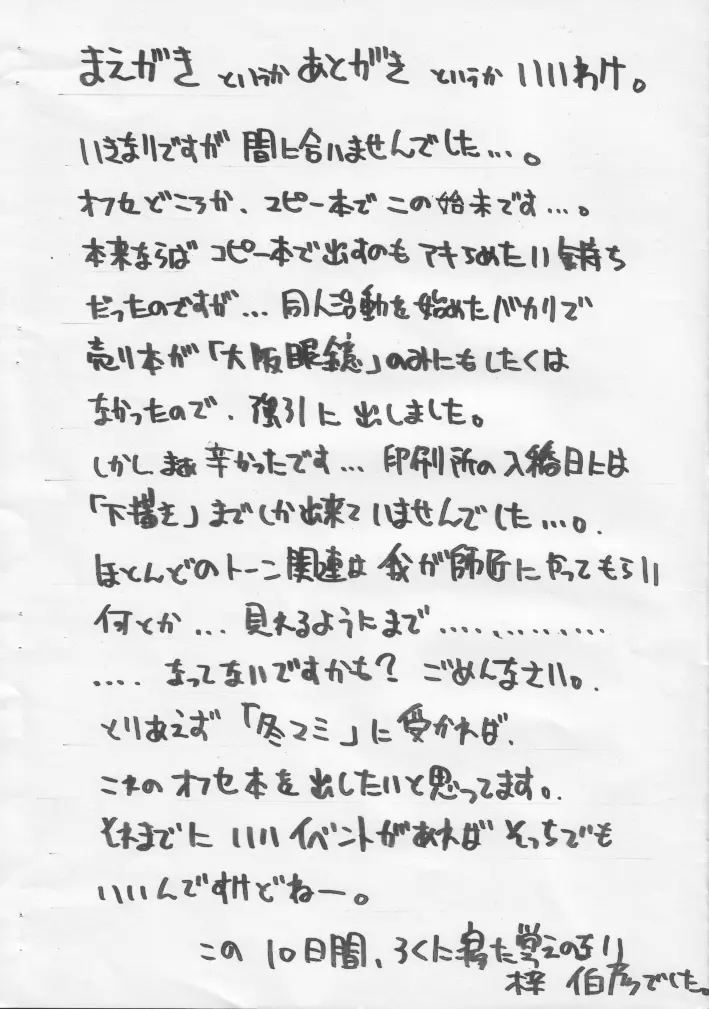 まえがき というか あとがき というか いいわけ。
いきなりですが 間に合いませんでした…。
オフセどころか、コピー本で この始末です…。
本来ならば コピー本で出すのも アキらめたい気持ち
だったのですが… 同人活動を始めたバカリで
売り本が「大阪眼鏡」のみにもしたくは
なかったので、強引に出しました。
しかし まぁ 辛かったです… 印刷所の入稿日には
「下描き」までしか出来ていませんでした…。
ほとんどのトーン関連は 我が師匠にやってもらい
何とか… 見れるようにまで……………
…. なってないですかも? ごめんなさい。
とりあえず「冬コミ」に受かれば、
これの オフセ本を出したいと思ってます。
それまでに いいイベントがあれば そっちでも
いいんですけどねー。
この 10日間、ろくに寝た覚えのない
梓 伯彦でした。